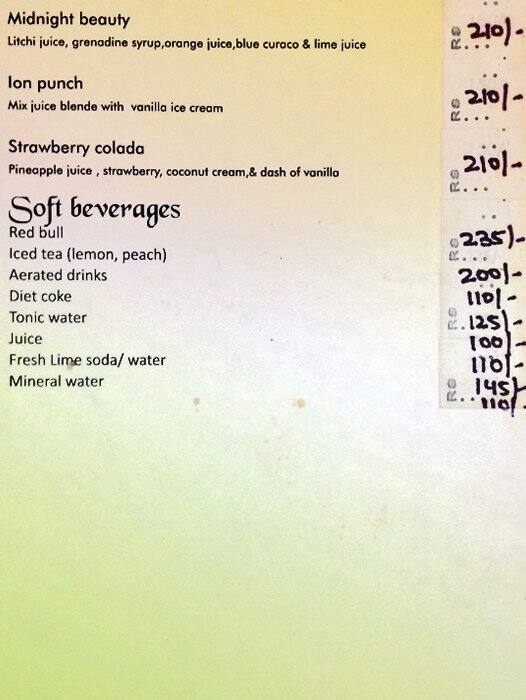 Midnight beauty
Litchi juice, grenadine syrup,orange juice,blue curaco & lime juice
Rs 210/-
Ion punch
Mix juice blende with vanilla ice cream
Rs 210/-
Strawberry colada
Pineapple juice , strawberry, coconut cream,& dash of vanilla
Rs 210/-
Soft beverages
Red bull Rs 235/-
Iced tea (lemon, peach) 200/-
Aerated drinks 110/-
Diet coke 125/-
Tonic water 100/-
Juice 110/-
Fresh Lime soda/ water Rs 145/-
Mineral water 110/-